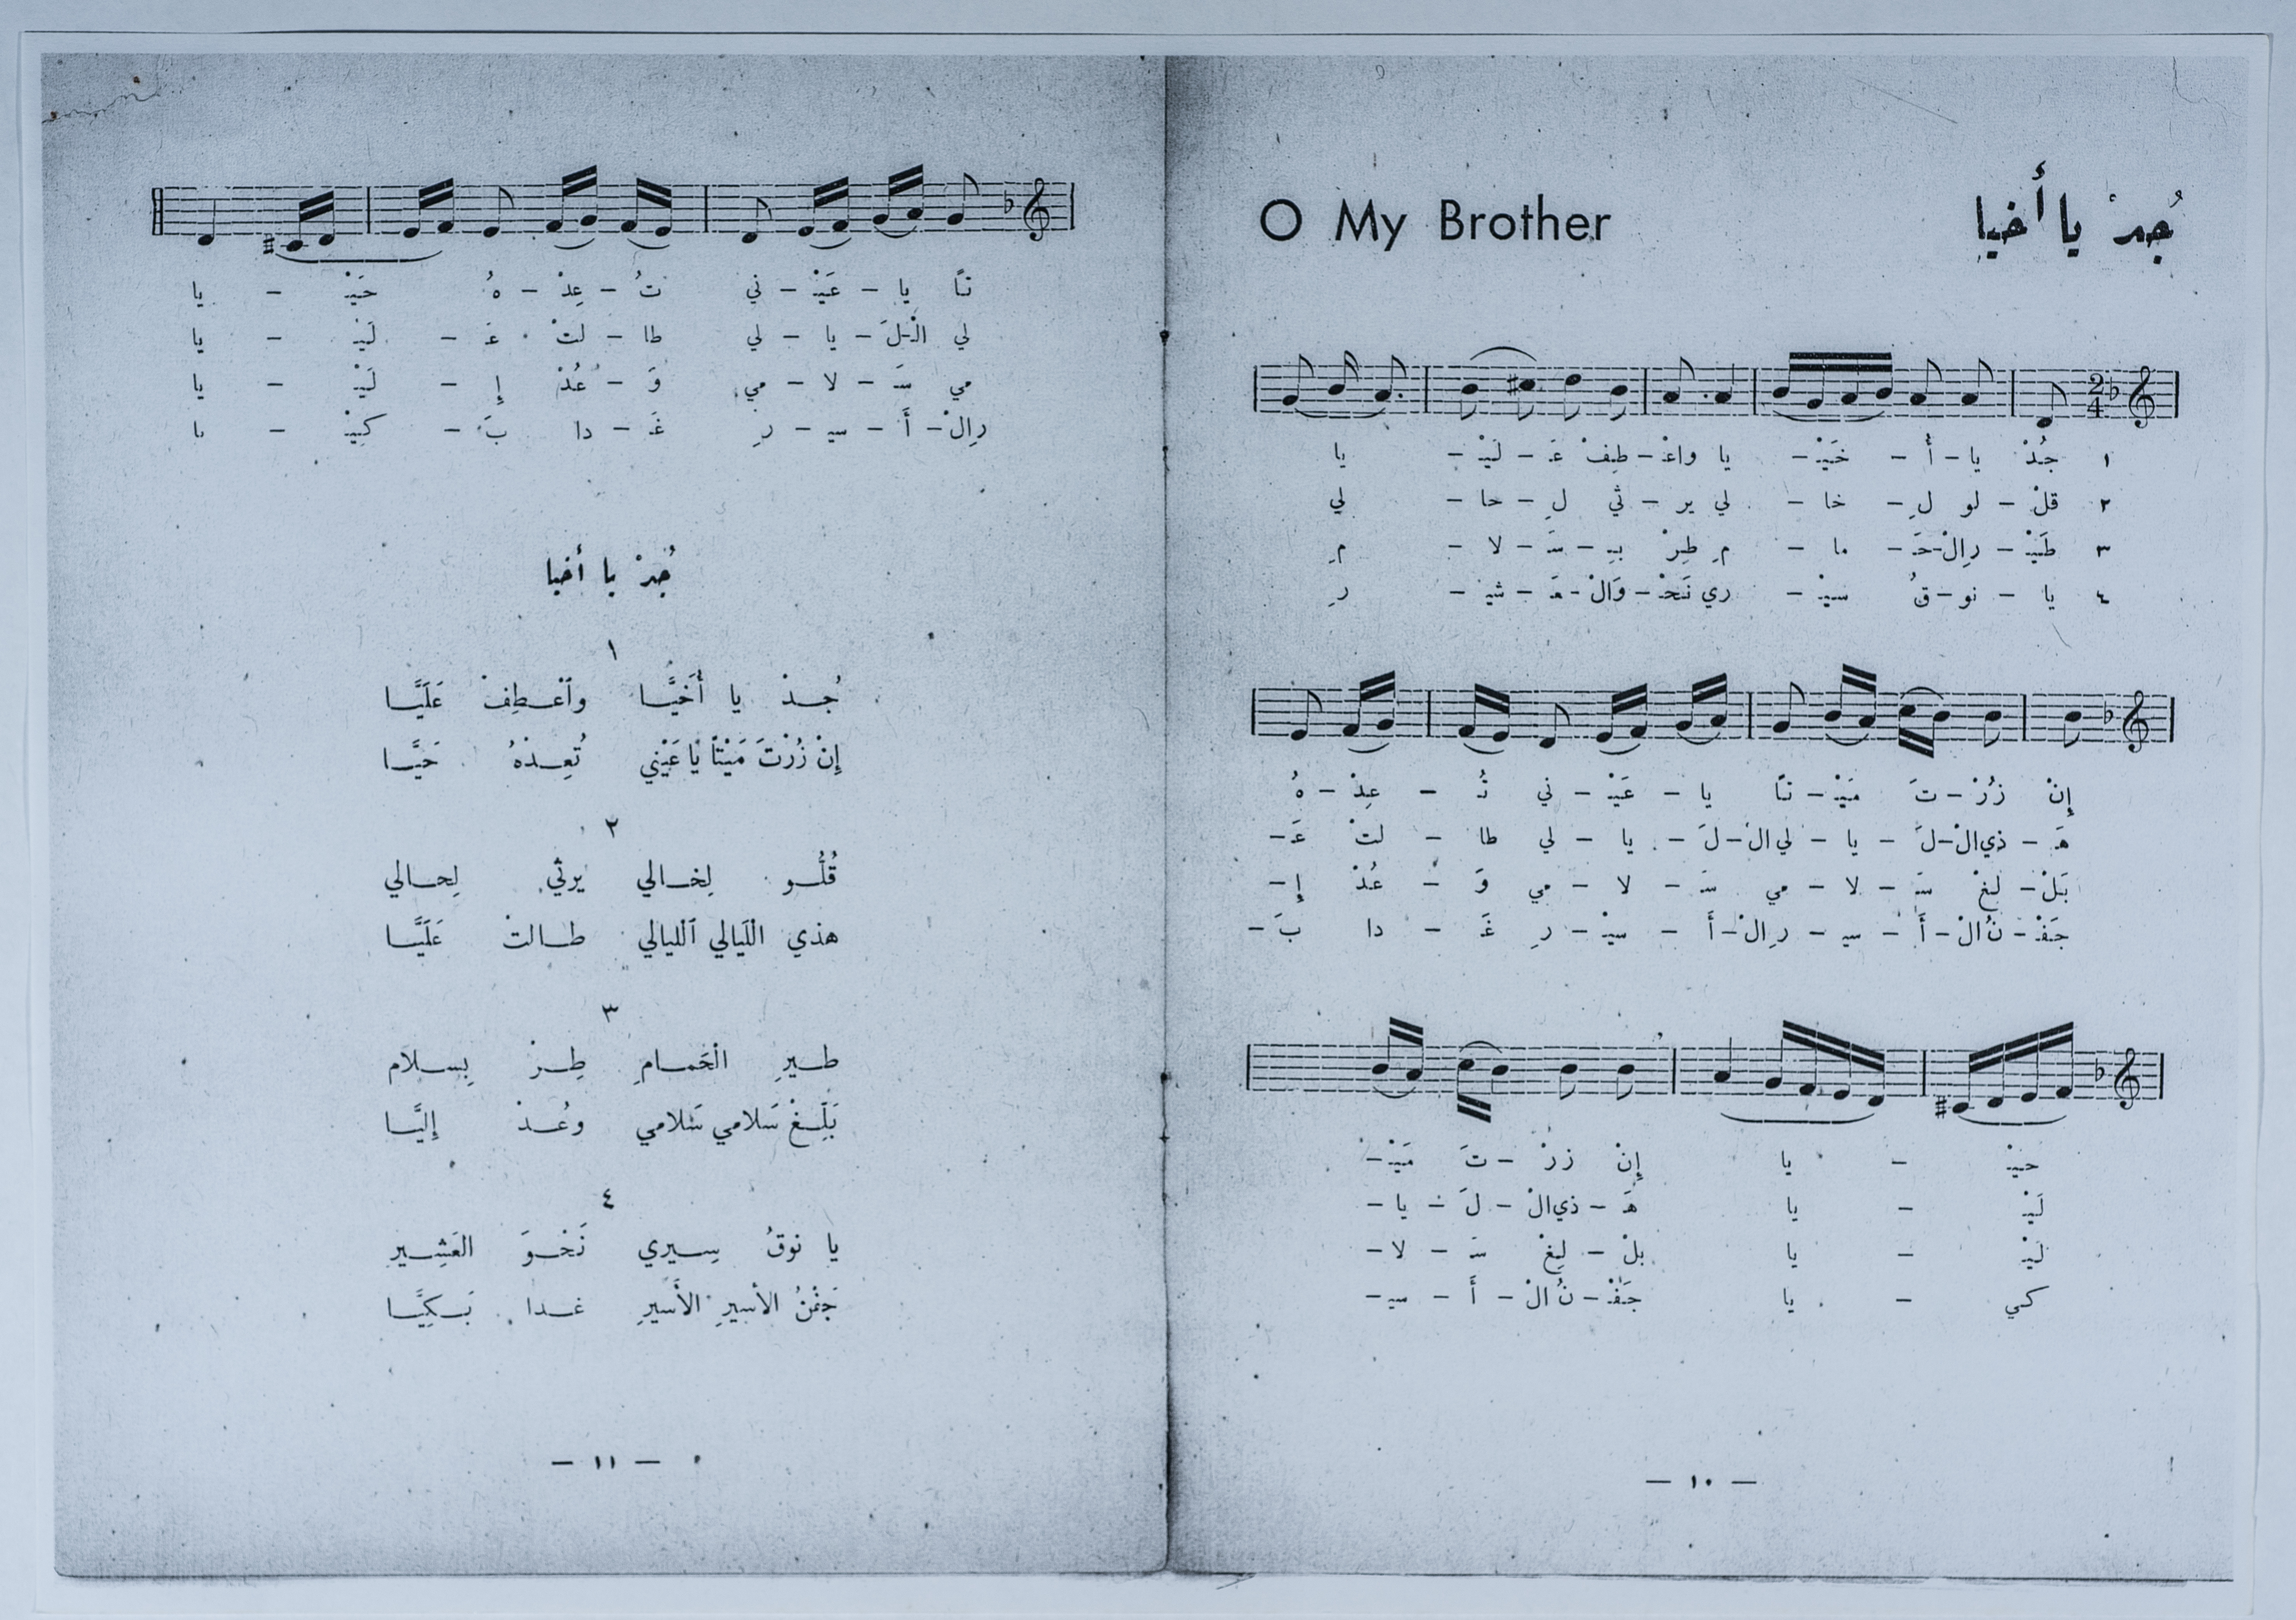 O My Brother
جُدْ يا أخيا
١ جُدْ يا - أُ - خَيْـ - يا واعْـ - طِفْ عَـ - لَيْـ - يا
٢ قلْ - لو لِ - خا - لي ير - ثي لِ - حا - لي
٣ طَيْـ - رِالْ - حَـ - ما - مِ طِرْ بِـ - سَـ - لا - مِ
٤ يا - نو - قُ سيْـ - ري نَحْـ - وَالْ - عَـ - شيْـ - رِ
إِنْ زُرْ - تَ مَيْـ - تًا يا - عَيْـ - ني تُـ - عِدْ - هُ
هَـ - ذي الْ - لَـ - يا - لي الْ - لَـ - يا - لي طا - لتْ عَـ -
بَلْ - لِغْ سَـ - لا - مي سَـ - لا - مي وَ - عُدْ إِ -
جَفْـ - نُ الْ - أَ - سيـ - رِ الْ - أَ - سيْـ - رِ غَـ - دا بَـ -
حيْـ - يا إِنْ زرْ - تَ مَيْـ -
لَيْـ - يا هَـ - ذي الْ - لَـ - يا -
لَيْـ - يا بلْ - لِغْ سَـ - لا -
كي - يا جَفْـ - نُ الْ - أَ - سيـ -
— ١٠ —
تًا يا - عَيْـ - ني تُ - عِدْ - هُ حَيْـ - يا
لي الْـ - لَ - يا - لي طا - لتْ عَـ - لَيْـ - يا
مي سَـ - لا - مي وَ - عُدْ إِ - لَيْـ - يا
رِالْ - أَ - سيـ - رِ غَـ - دا بَ - كيْـ - ا
جُدْ يا أخيا
١
جُـدْ يا أُخَيَّـا وٱعْـطِفْ عَلَيَّـا
إِنْ زُرْتَ مَيْتًا يا عَيْني تُعِـدْهُ حَيَّـا
٢
قُلُّـو لِخـالي يرثي لِحـالي
هذي الْلَيالي ٱلْليالي طـالتْ عَلَيَّـا
٣
طـيرِ الْحَمـامِ طِـرْ بِسـلام
بَلِّـغْ سَلامي سَلامي وعُـدْ إليَّـا
٤
يا نوقُ سِـيري نَحْـوَ العَشِـير
جَفْنُ الأسيرِ الأَسيرِ غـدا بَـكِيَّـا
— ١١ —